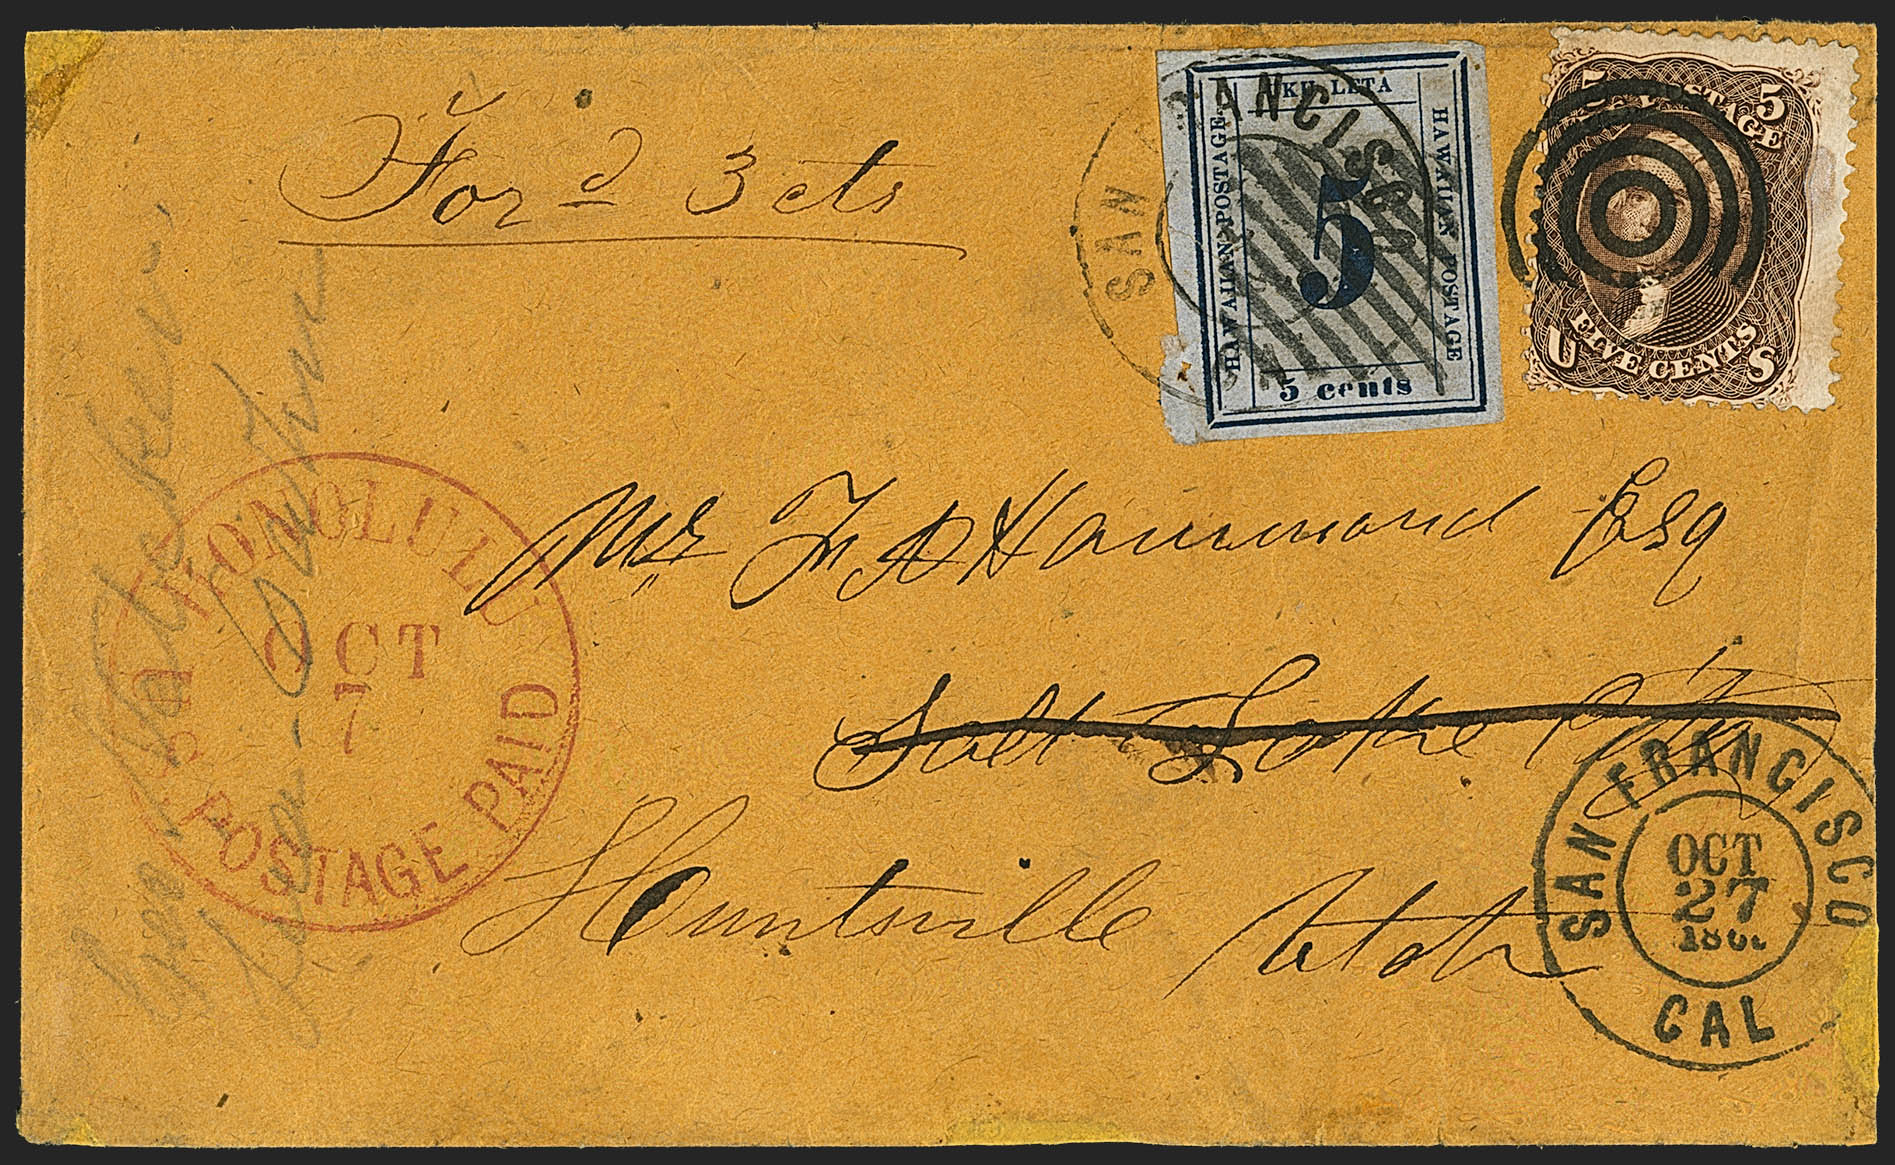 For'd 3 cts
UKU LETA
HAWAIIAN POSTAGE
5
HAWAIIAN POSTAGE
5 cents
SAN FRANCISCO
5 POSTAGE 5
U FIVE CENTS S
HONOLULU
OCT
7
U.S. POSTAGE PAID
Mr. F A Hammond Esq
Salt Lake City
Huntsville Utah
SAN FRANCISCO
OCT
27
CAL